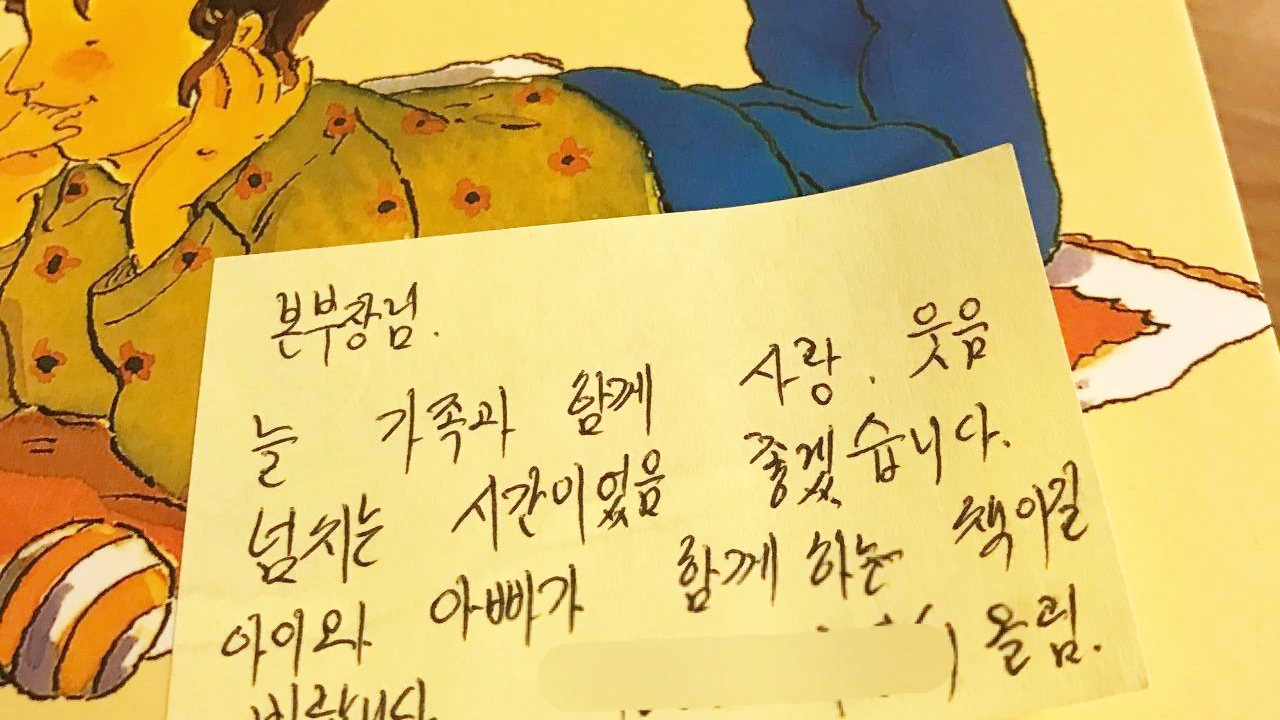 본부장님.
늘 가족과 함께 사랑. 웃음
넘치는 시간이었음 좋겠습니다.
아이와 아빠가 함께 하는 책이길
올림.